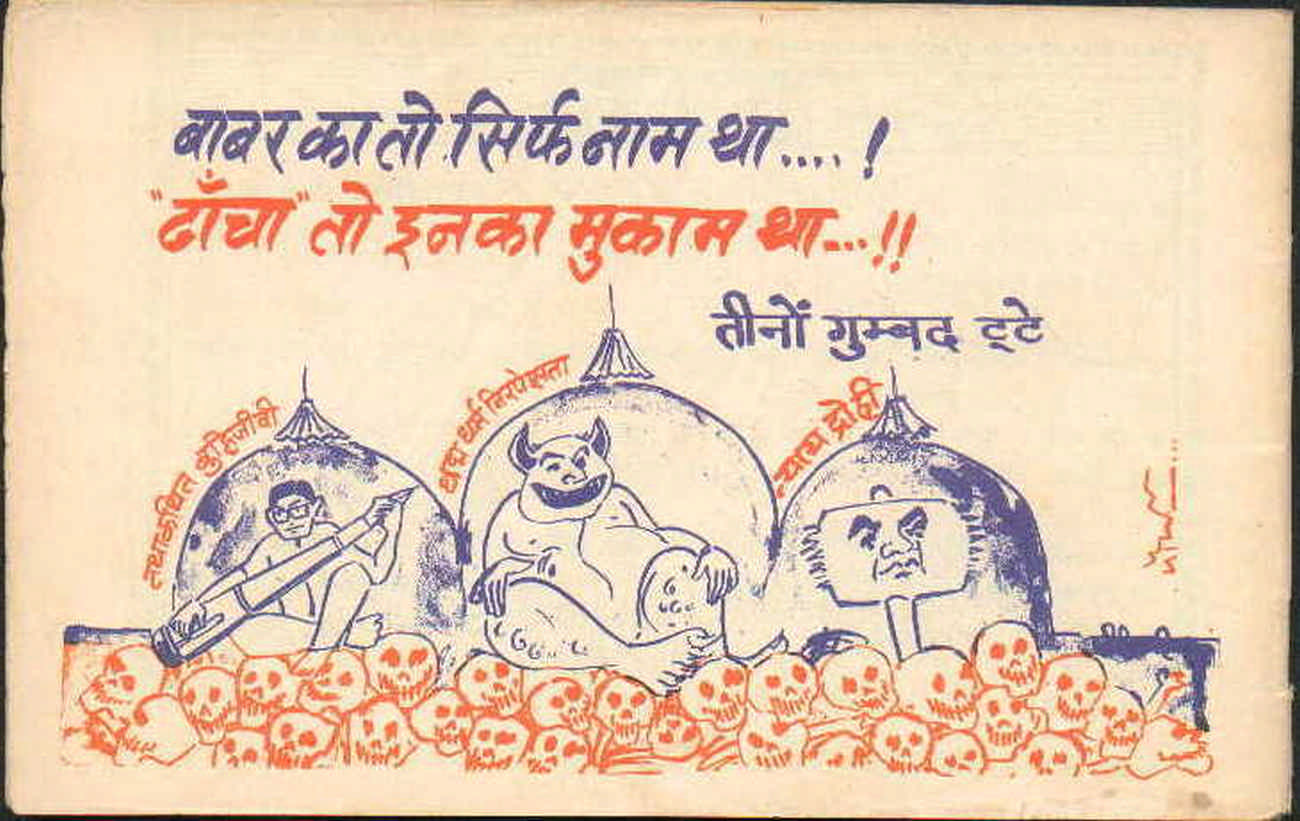 बाबर का तो सिर्फ नाम था....!
"ढाँचा" तो इनका मुकाम था...!!
तीनों गुम्बद टूटे
तथाकथित बुद्धिजीवी
छद्म धर्म निरपेक्षता
न्याय द्रोही